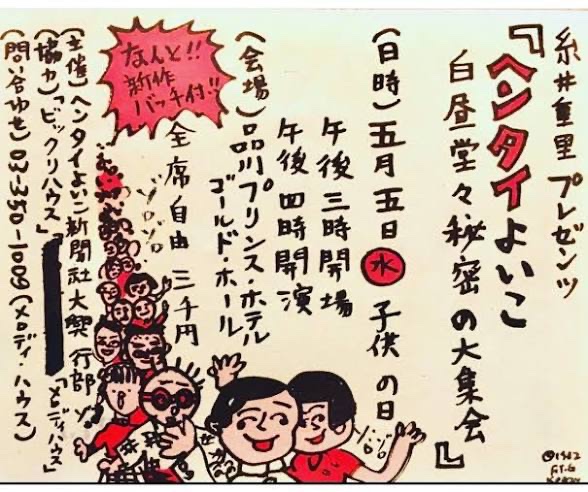 糸井重里 プレゼンツ
『ヘンタイよいこ
白昼堂々秘密の大集会』
(日時)五月五日㊌子供の日
午後三時開場
午後四時開演
(会場)品川プリンス・ホテル
ゴールド・ホール
全席自由 三千円
なんと!!
新作
バッチ付!!
ゾロゾロ
(主催)ヘンタイよいこ新聞社大興行部
(協力)「ビックリハウス」「メロディハウス」
(問い合わせ)03-350-1009(メロディ・ハウス)
©1982